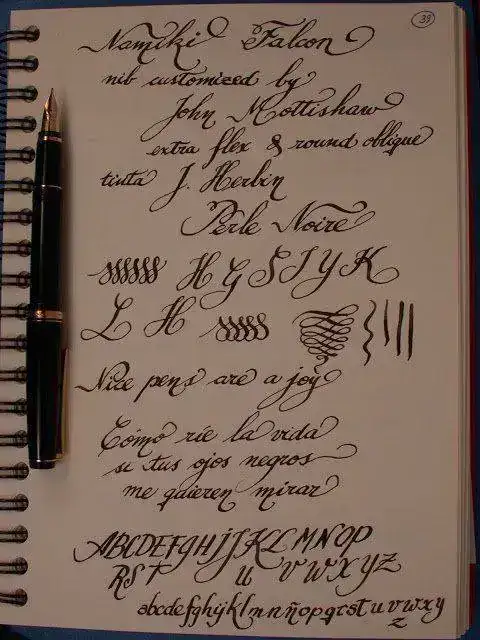 39
Namiki Falcon
nib customized by
John Mottishaw
extra flex & round oblique
tinta J. Herbin
Perle Noire
H G S I Y K
L H
Nice pens are a joy
Cómo ríe la vida
si tus ojos negros
me quieren mirar
ABCDEFGHIJKLMNOP
RST U VWXYZ
abcdefghijklmnñopqrstuvwxy
z